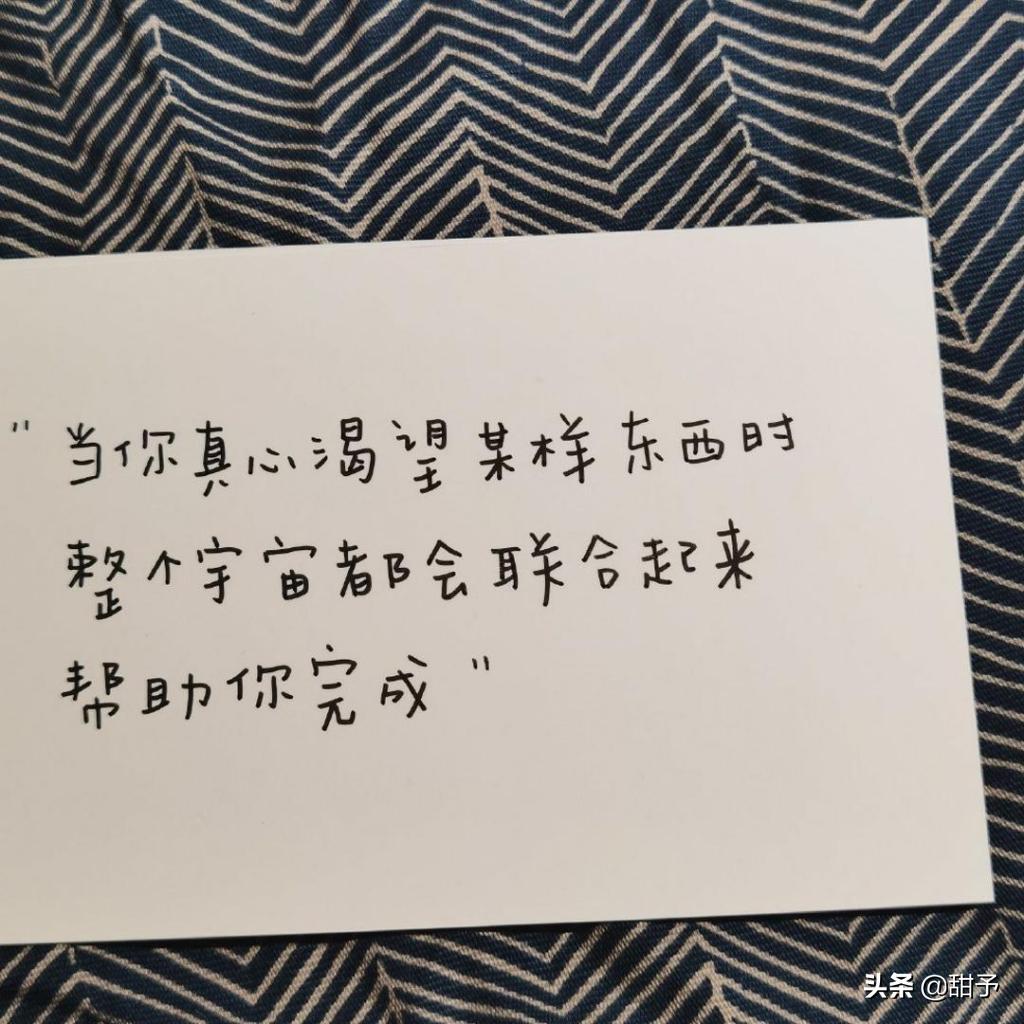 "当你真心渴望某样东西时
整个宇宙都会联合起来
帮助你完成"
头条 @甜予